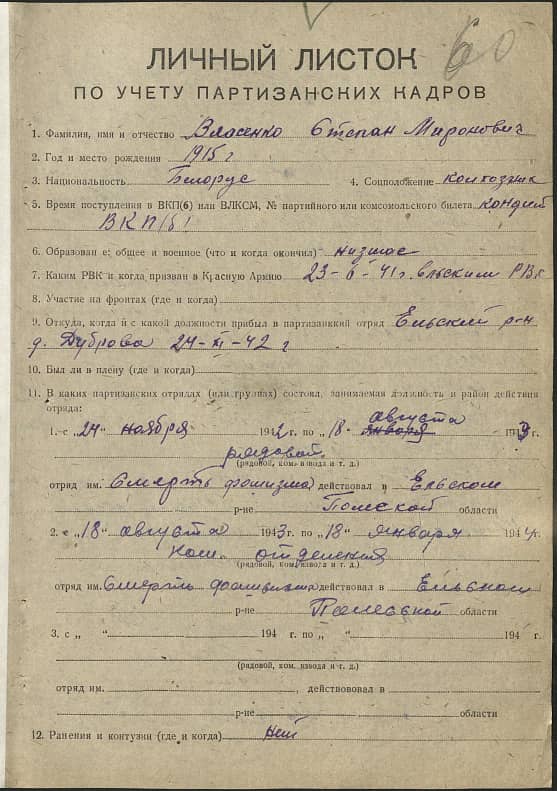 60
ЛИЧНЫЙ ЛИСТОК
ПО УЧЕТУ ПАРТИЗАНСКИХ КАДРОВ
1. Фамилия, имя и отчество Власенко Степан Миронович
2. Год и место рождения 1915 г
3. Национальность Белорус 4. Соцположение колхозник
5. Время поступления в ВКП(б) или ВЛКСМ, № партийного или комсомольского билета кандид
ВКП(б)
6. Образование: общее и военное (что и когда окончил) низшее
7. Каким РВК и когда призван в Красную Армию 23-6-41 г. Ельским РВК
8. Участие на фронтах (где и когда)
9. Откуда, когда и с какой должности прибыл в партизанский отряд Ельский р-н
д. Дуброва 24-XI-42 г
10. Был ли в плену (где и когда)
11. В каких партизанских отрядах (или группах) состоял, занимаемая должность и район действия
отряда:
августа
1. с „24" ноября 1942 г. по „18" января 1943 г.
рядовой
(рядовой, ком. взвода и т. д.)
отряд им. Смерть фашизма действовал в Ельском
р-не Полесской области
2. с „18" августа 1943 г. по „18" января 1944 г.
ком. отделения
(рядовой, ком. взвода и т. д.)
отряд им. Смерть фашизма действовал в Ельском
р-не Полесской области
3. с „ " 194 г. по „ " 194 г.
(рядовой, ком. взвода и т. д.)
отряд им. , действовал в
р-не области
12. Ранения и контузии (где и когда) нет